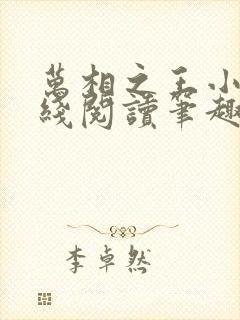 萬相之王小
綫閱讀筆趣
李卓然